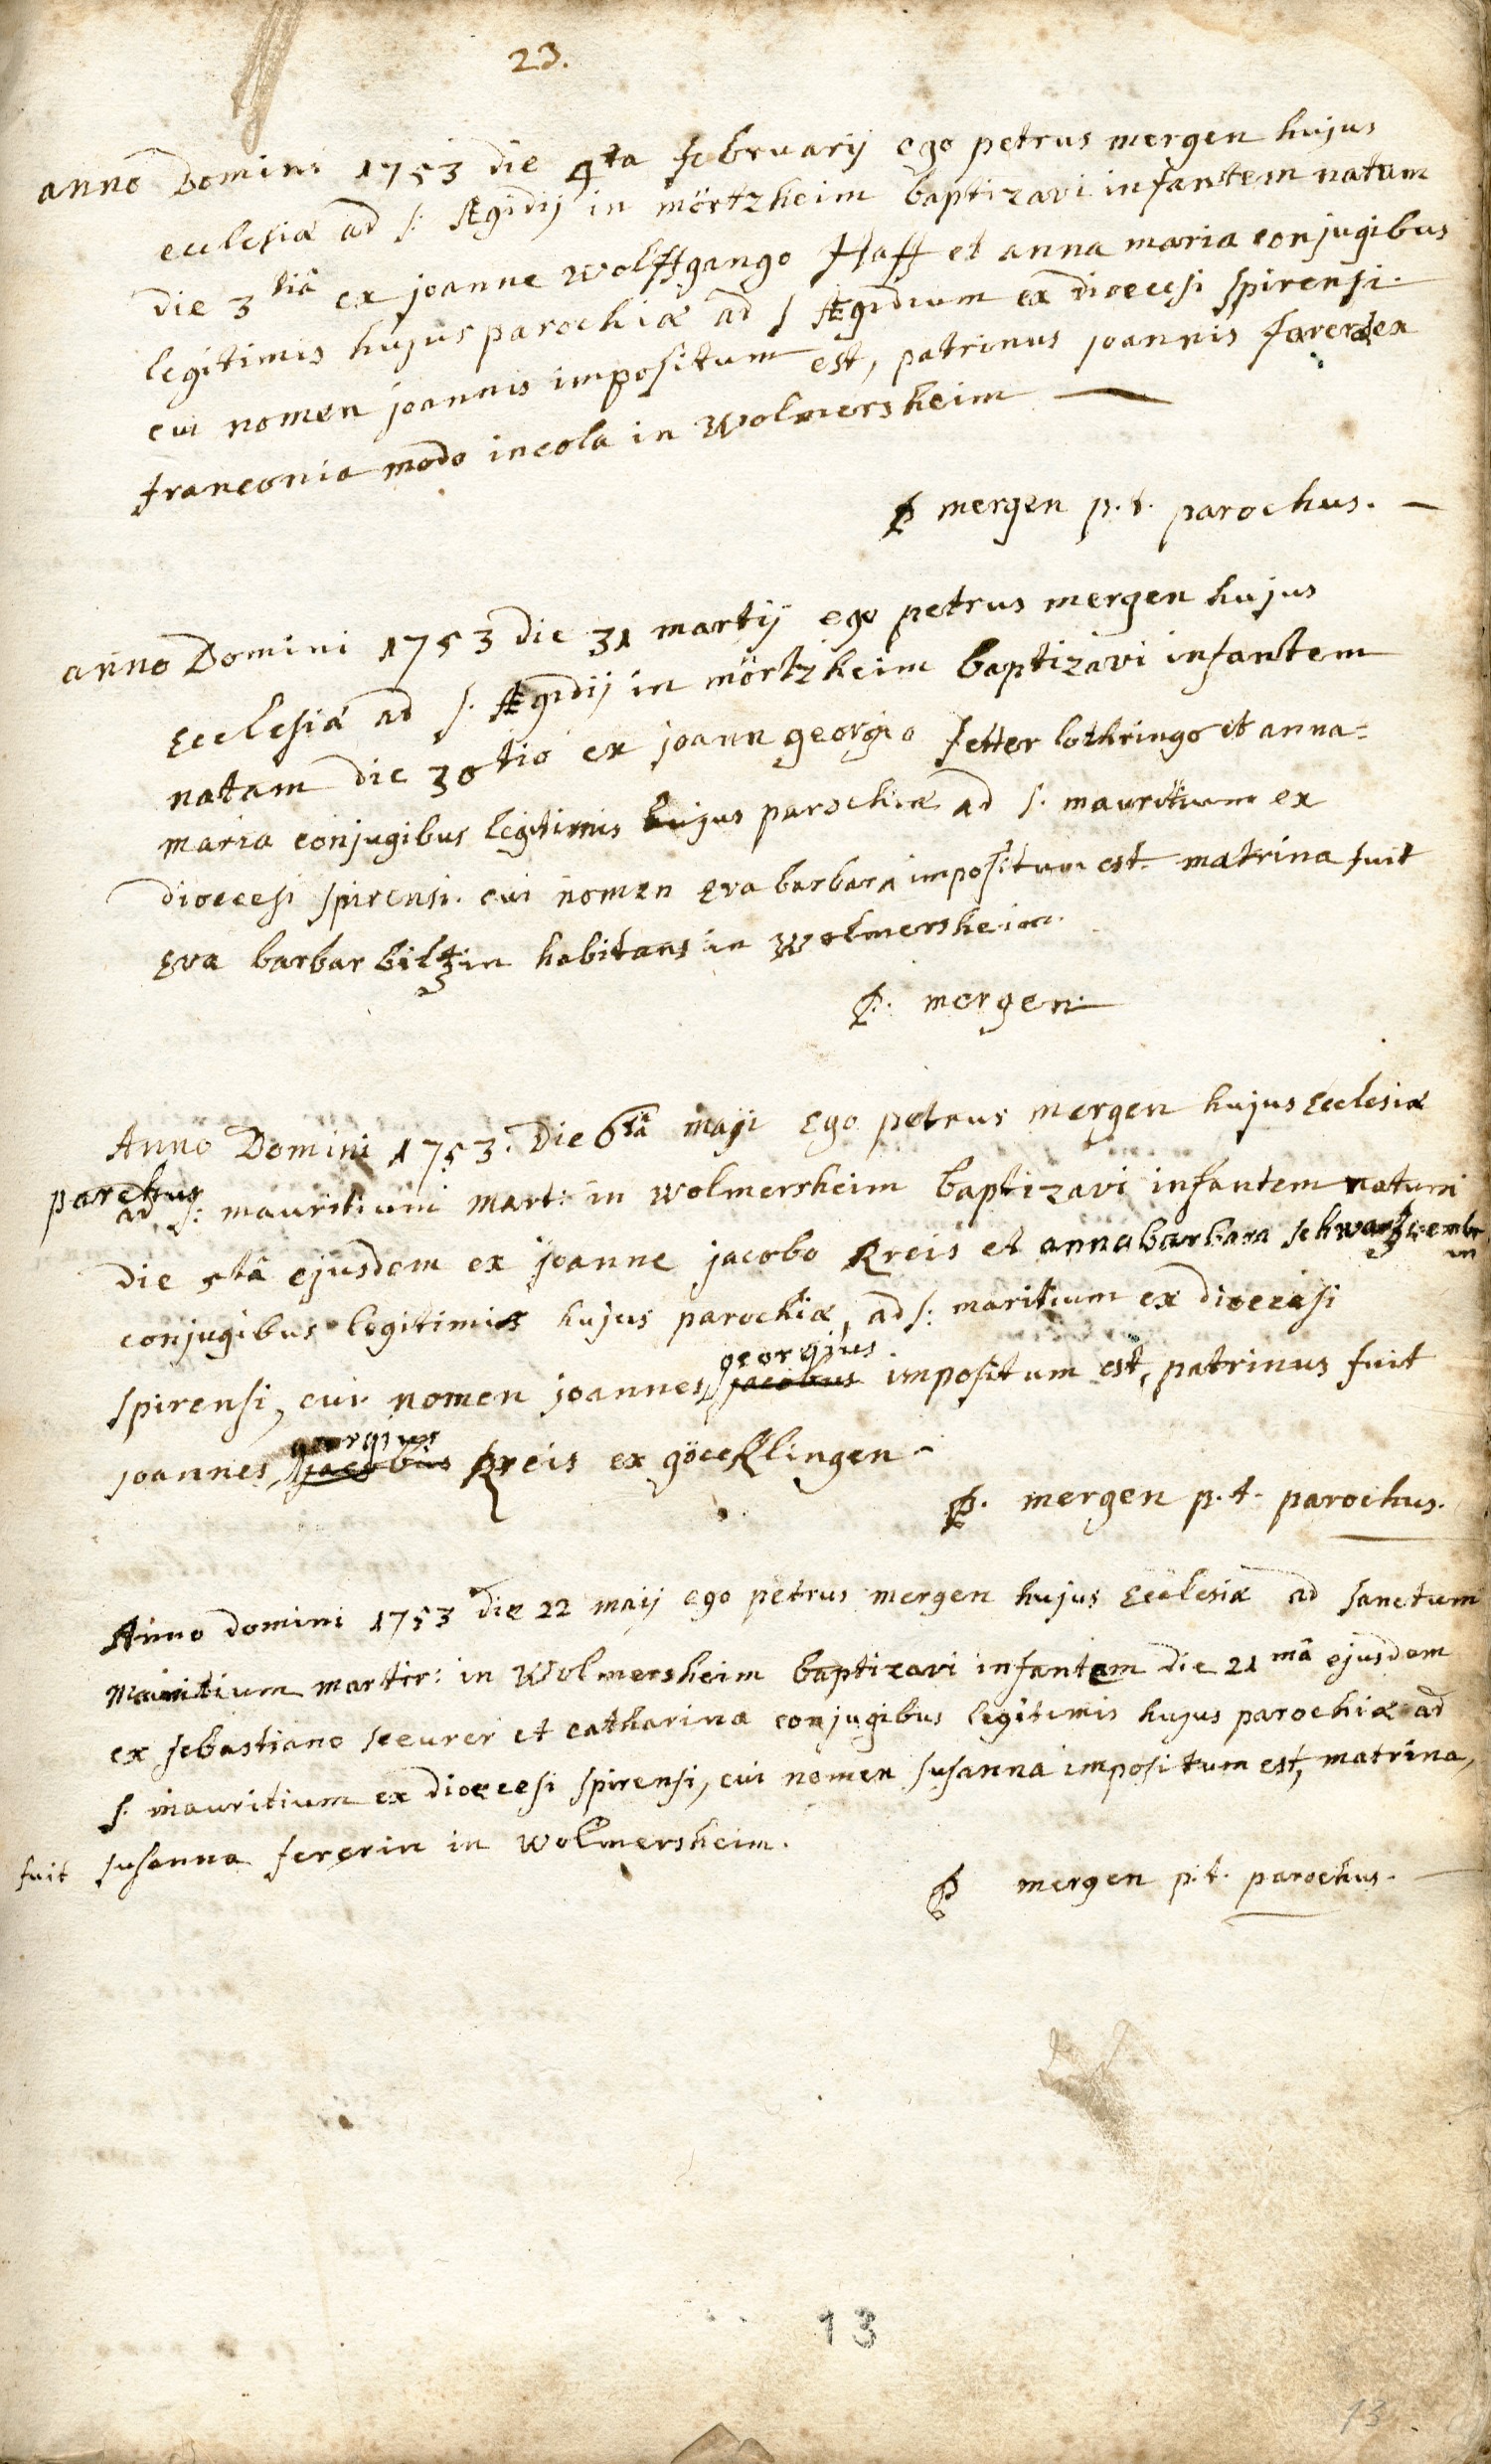 23.
anno Domini 1753 die 4ta februarij ego petrus mergen hujus
ecclesiæ ad s: Ægidij in mörtzheim baptizavi infantem natum
die 3tiâ ex joanne wolffgango Haff et anna maria conjugibus
legitimis hujus parochiæ ad s Ægidium ex dioecesi spirensi.
cui nomen joannis impositum est, patrinus joannis ex
franconia modo incola in Wolmersheim
P mergen p. t. parochus.
anno Domini 1753 die 31 martij ego petrus mergen hujus
Ecclesiæ ad s. Ægidij in mörtzheim baptizavi infantem
natam die 30tio ex joann georgio fetter lothringo et anna=
maria conjugibus legitimis hujus parochiæ ad s. mauritium ex
dioecesi spirensi. cui nomen Eva barbara impositum est. matrina fuit
Eva barbar biltzin habitans in Wolmersheim.
P. mergen.
Anno Domini 1753. Die 6tâ maji Ego petrus mergen hujus Ecclesiæ
parchus
ad s: mauritium mart: in wolmersheim baptizavi infantem natum
die 5tâ ejusdem ex joanne jacobo Kreis et annabarbara
conjugibus legitimis hujus parochiæ, ad s: maritium ex dioecesi
georgius
spirensi, cui nomen joannes jacobus impositum est, patrinus fuit
georgius
joannes jacobus Kreis ex göcklingen
P. mergen p. t. parochus.
Anno domini 1753 die 22 maij ego petrus mergen hujus Ecclesiæ ad sanctum
Mauritium martir: in Wolmersheim baptizavi infantem die 21mâ ejusdem
ex sebastiano sceurer et catharina conjugibus legitimis hujus parochiæ ad
s. mauritium ex dioecesi spirensi, cui nomen susanna impositum est, matrina,
fuit susanna fererin in wolmersheim.
P mergen p. t. parochus.
13
13